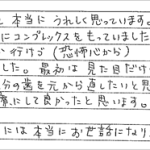 と本当にうれしく思っています。
にコンプレックスをもっていました
行けら(恐怖心から)
した。最初は見た目だけ
分の歯を元から直したいと思
療にして良かったと思います。
には本当にお世話になり